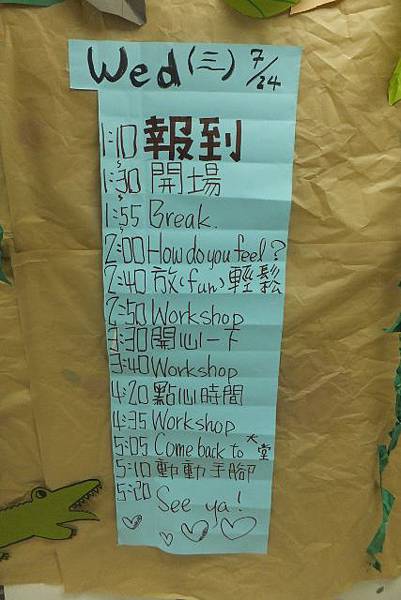 Wed (三) 7/24
1:10 報到
1:30 開場
1:55 Break.
2:00 How do you feel?
2:40 放(fun)輕鬆
2:50 Workshop
3:30 開心一下
3:40 Workshop
4:20 點心時間
4:35 Workshop
5:05 Come back to 大堂
5:10 動動手腳
5:20 See ya!